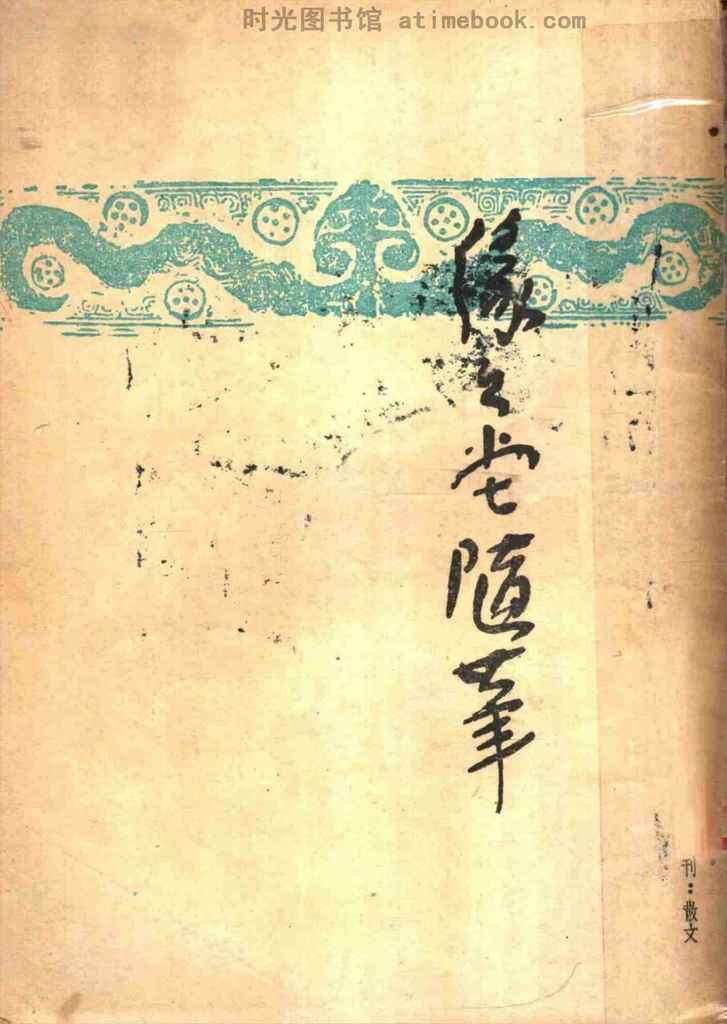 时光图书馆 atimebook.com
緣々堂隨筆
刊：散文